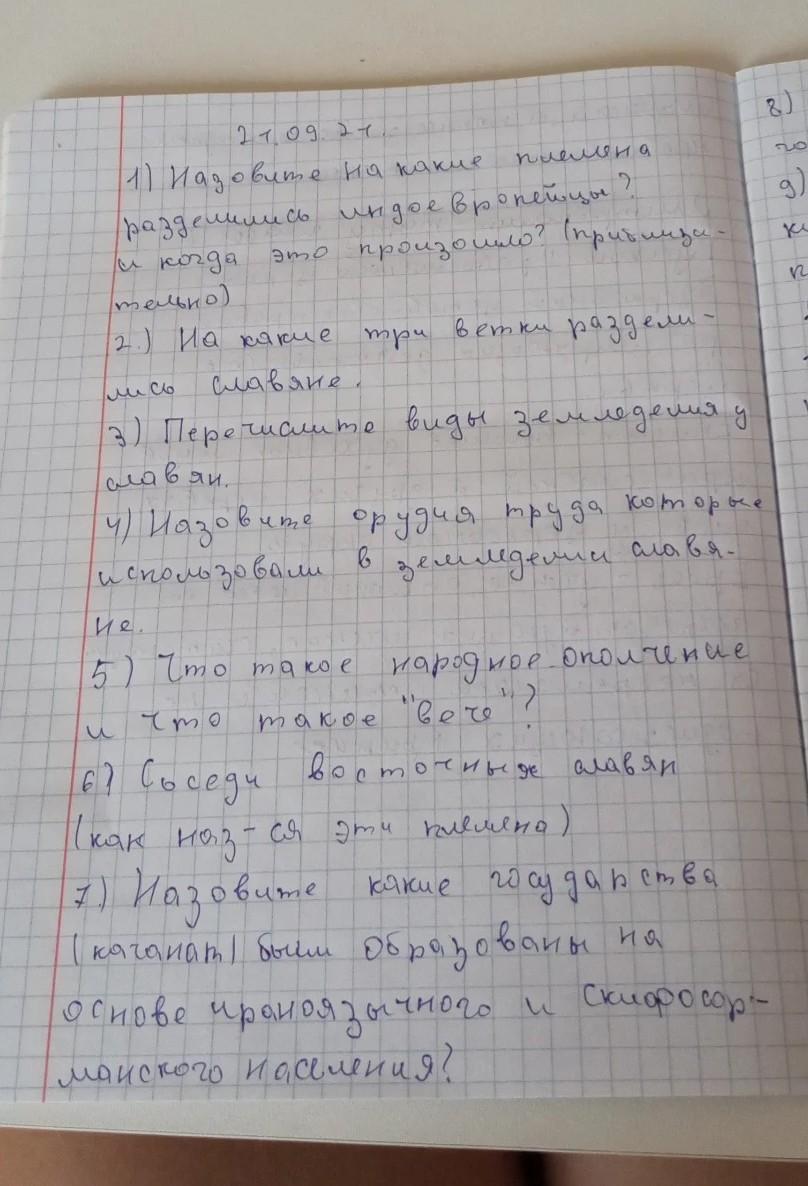 21.09.21.
1) Назовите на какие племена
разделились индоевропейцы?
и когда это произошло? (приблизи-
тельно)
2.) На какие три ветки раздели-
лись славяне.
3) Перечислите виды земледелия у
славян.
4) Назовите орудия труда которые
использовали в земледелии славя-
не.
5) Что такое народное ополчение
и что такое "вече"?
6) Соседи восточных славян
(как наз-ся эти племена)
7) Назовите какие государства
(каганат) были образованы на
основе ираноязычного и скифосар-
манского населения?
8)
9)